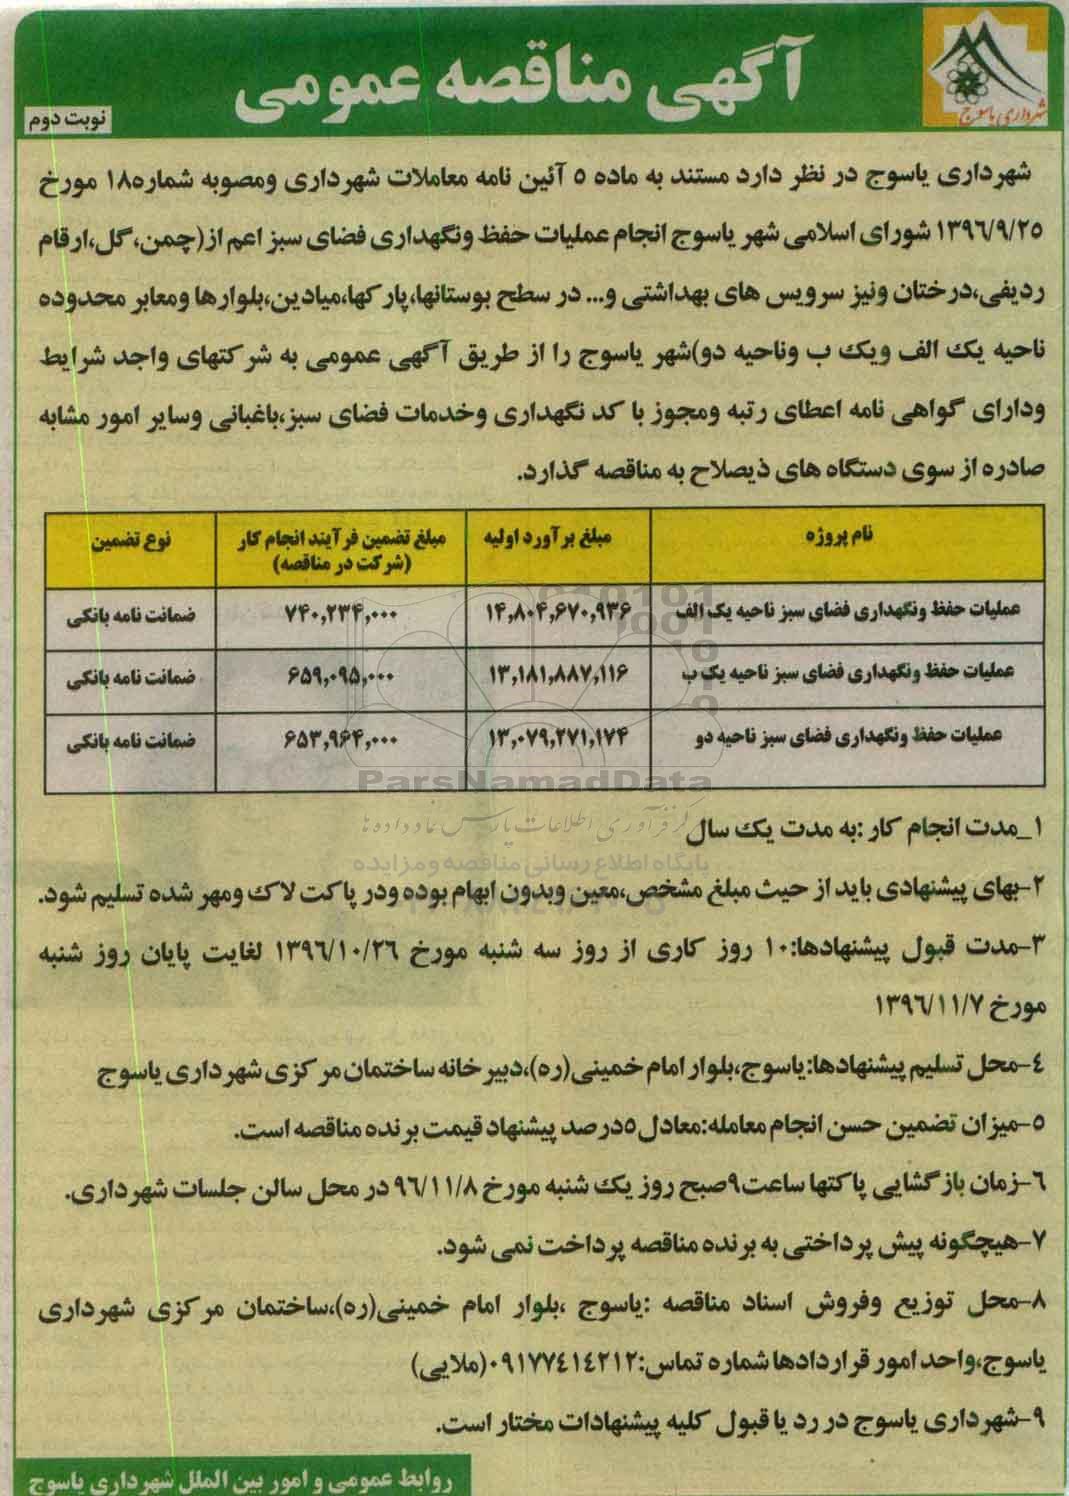 آگهی مناقصه عمومی
شهرداری یاسوج
نوبت دوم
شهرداری یاسوج در نظر دارد مستند به ماده ۵ آئین نامه معاملات شهرداری ومصوبه شماره۱۸ مورخ
۱۳۹۶/۹/۲۵ شورای اسلامی شهر یاسوج انجام عملیات حفظ ونگهداری فضای سبز اعم از(چمن،گل،ارقام
ردیفی،درختان ونیز سرویس های بهداشتی و... در سطح بوستانها،پارکها،میادین،بلوارها ومعابر محدوده
ناحیه یک الف ویک ب وناحیه دو)شهر یاسوج را از طریق آگهی عمومی به شرکتهای واجد شرایط
ودارای گواهی نامه اعطای رتبه ومجوز با کد نگهداری وخدمات فضای سبز،باغبانی وسایر امور مشابه
صادره از سوی دستگاه های ذیصلاح به مناقصه گذارد.
نام پروژه	مبلغ برآورد اولیه	مبلغ تضمین فرآیند انجام کار (شرکت در مناقصه)	نوع تضمین
عملیات حفظ ونگهداری فضای سبز ناحیه یک الف	۱۴,۸۰۴,۶۷۰,۹۳۶	۷۴۰,۲۳۴,۰۰۰	ضمانت نامه بانکی
عملیات حفظ ونگهداری فضای سبز ناحیه یک ب	۱۳,۱۸۱,۸۸۷,۱۱۶	۶۵۹,۰۹۵,۰۰۰	ضمانت نامه بانکی
عملیات حفظ ونگهداری فضای سبز ناحیه دو	۱۳,۰۷۹,۲۷۱,۱۷۴	۶۵۳,۹۶۴,۰۰۰	ضمانت نامه بانکی
ParsNamadData
۱_مدت انجام کار :به مدت یک سال
پایگاه اطلاع رسانی مناقصه ومزایده
۲-بهای پیشنهادی باید از حیث مبلغ مشخص،معین وبدون ابهام بوده ودر پاکت لاک ومهر شده تسلیم شود.
۳-مدت قبول پیشنهادها:۱۰ روز کاری از روز سه شنبه مورخ ۱۳۹۶/۱۰/۲۶ لغایت پایان روز شنبه
مورخ ۱۳۹۶/۱۱/۷
۴-محل تسلیم پیشنهادها:یاسوج،بلوار امام خمینی(ره)،دبیرخانه ساختمان مرکزی شهرداری یاسوج
۵-میزان تضمین حسن انجام معامله:معادل۵درصد پیشنهاد قیمت برنده مناقصه است.
۶-زمان بازگشایی پاکتها ساعت۹صبح روز یک شنبه مورخ ۹۶/۱۱/۸ در محل سالن جلسات شهرداری.
۷-هیچگونه پیش پرداختی به برنده مناقصه پرداخت نمی شود.
۸-محل توزیع وفروش اسناد مناقصه :یاسوج ،بلوار امام خمینی(ره)،ساختمان مرکزی شهرداری
یاسوج،واحد امور قراردادها شماره تماس:۰۹۱۷۷۴۱۴۲۱۲(ملایی)
۹-شهرداری یاسوج در رد یا قبول کلیه پیشنهادات مختار است.
روابط عمومی و امور بین الملل شهرداری یاسوج